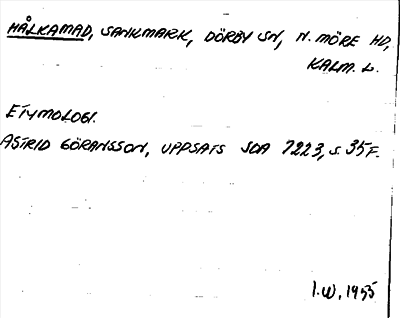 HÅLKAMAD, SANKMARK, DÖRBY SN, N. MÖRE HD,
KALM. L.
ETYMOLOGI.
ASTRID GÖRANSSON, UPPSATS SOA 7223, S. 35 F.
I.W. 1955